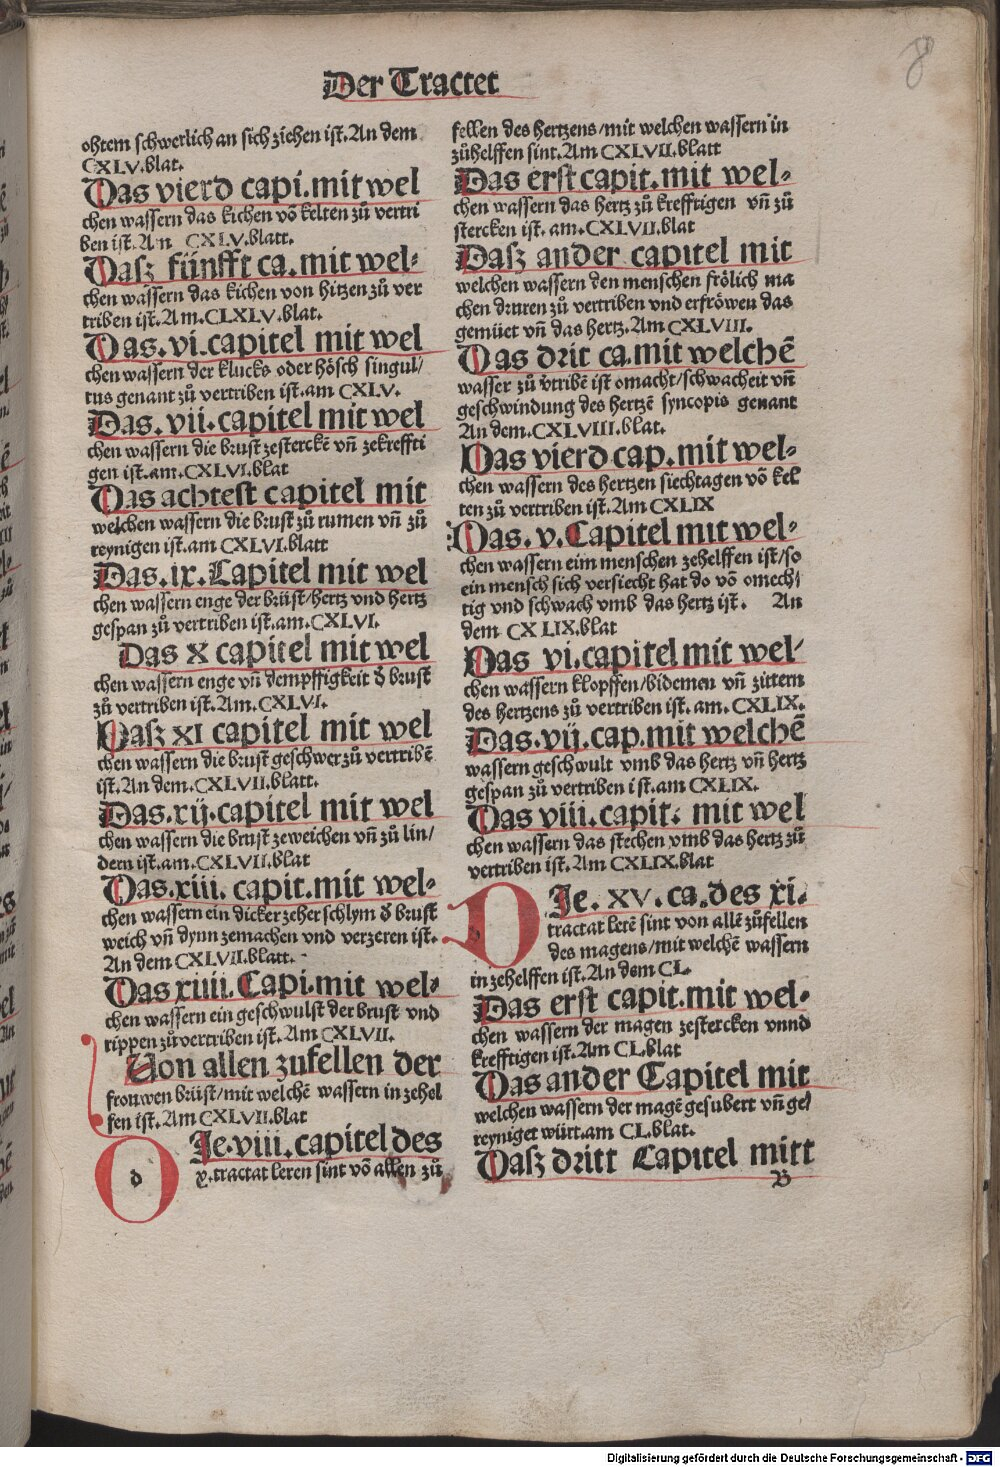 Der Tractet
8
ohtem schwerlich an sich ziehen ist. An dem
CXLV. blat.
Das vierd capi. mit wel
chen wassern das kichen võ kelten zů vertri
ben ist. An CXLV. blatt.
Dasz fünfft ca. mit wel-
chen wassern das kichen von hitzen zů ver
triben ist. Am. CLXLV. blat.
Das. vi. capitel mit wel
chen wassern der klucks oder hösch singul/
tus genant zů vertriben ist. am CXLV.
Das. vii. capitel mit wel
chen wassern die brust zesterckẽ vñ zekreffti
gen ist. am. CXLVI. blat
Das achtest capitel mit
welchen wassern die brust zů rumen vñ zů
reynigen ist. am CXLVI. blatt
Das. ix. Capitel mit wel
chen wassern enge der brüst/ hertz vnd hertz
gespan zů vertriben ist. am. CXLVI.
Das X capitel mit wel
chen wassern enge vñ dempffigkeit ð brust
zů vertriben ist. Am. CXLVI.
Dasz XI capitel mit wel
chen wassern die brust geschwer zů vertribẽ
ist. An dem. CXLVII. blatt.
Das. xij. capitel mit wel
chen wassern die brust zeweichen vñ zů lin/
dern ist. am. CXLVII. blat
Das. xiii. capit. mit wel-
chen wassern ein dicker zeher schlym ð brust
weich vñ dynn zemachen vnd verzeren ist.
An dem CXLVII. blatt.
Das xiiii. Capi. mit wel-
chen wassern ein geschwulst der brust vnd
rippen zů vertriben ist. Am CXLVII.
Von allen zufellen der
frouwen brüst/ mit welchẽ wassern in zehel
fen ist. Am CXLVII. blat
d
Je. viii. capitel des
x. tractat leren sint võ allen zů
fellen des hertzens/ mit welchen wassern in
zůhelffen sint. Am CXLVII. blatt
Das erst capit. mit wel-
chen wassern das hertz zů krefftigen vñ zů
stercken ist. am. CXLVII. blat
Dasz ander capitel mit
welchen wassern den menschen frölich ma
chen druren zů vertriben vnd erfröwen das
gemüet vñ das hertz. Am CXLVIII.
Das drit ca. mit welchẽ
wasser zů v̊tribẽ ist omacht/ schwacheit vñ
geschwindung des hertzẽ syncopis genant
An dem. CXLVIII. blat.
Das vierd cap. mit wel-
chen wassern des hertzen siechtagen võ kel
ten zů vertriben ist. Am CXLIX
Das. v. Capitel mit wel-
chen wassern eim menschen zehelffen ist/ so
ein mensch sich versiecht hat do võ omech/
tig vnd schwach vmb das hertz ist. An
dem CXLIX. blat
Das vi. capitel mit wel/
chen wassern klopffen/ bidemen vñ zittern
des hertzens zů vertriben ist. am. CXLIX.
Das. vij. cap. mit welchẽ
wassern geschwult vmb das hertz vñ hertz
gespan zů vertriben ist. am CXLIX.
Das viii. capit. mit wel
chen wassern das stechen vmb das hertz zů
vertriben ist. Am CXLIX. blat
D
Je. XV. ca. des xi.
tractat lerẽ sint von allẽ zůfellen
des magens/ mit welchẽ wassern
in zehelffen ist. An dem CL.
Das erst capit. mit wel-
chen wassern der magen zestercken vnnd
krefftigen ist. Am CL. blat
Das ander Capitel mit
welchen wassern der magẽ gesubert vñ ge/
reyniget würt. am CL. blat.
Dasz dritt Capitel mitt
B
Digitalisierung gefördert durch die Deutsche Forschungsgemeinschaft - DFG